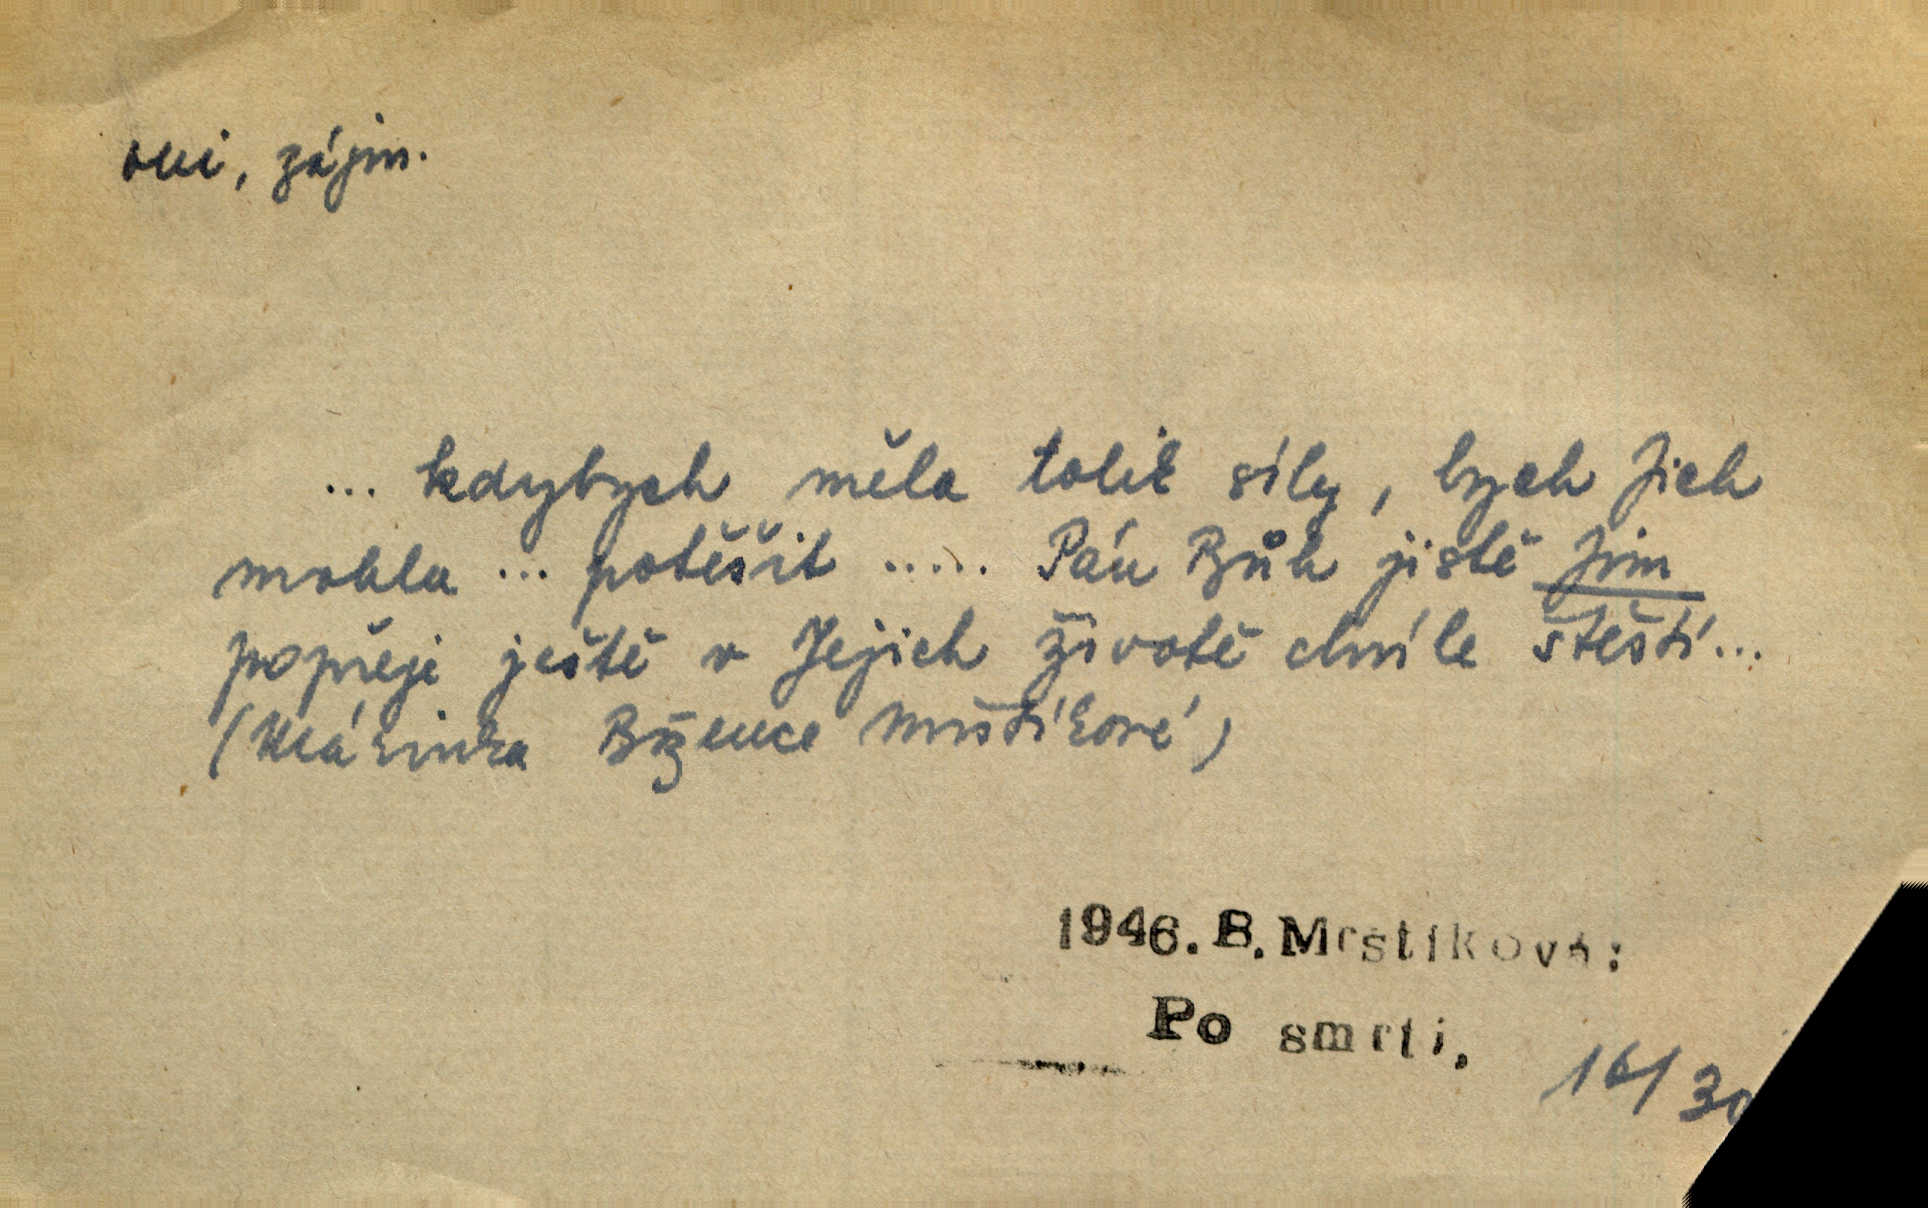 oni, zájm.
... kdybych měla tolik síly, bych Jich
mohla ... potěšit ..... Pán Bůh jistě Jim
popřeje ještě v Jejich životě chvíle štěstí...
(Klárinka Božence Mrštíkové)
1946. B. Mrštíková:
Po smrti.
16/30